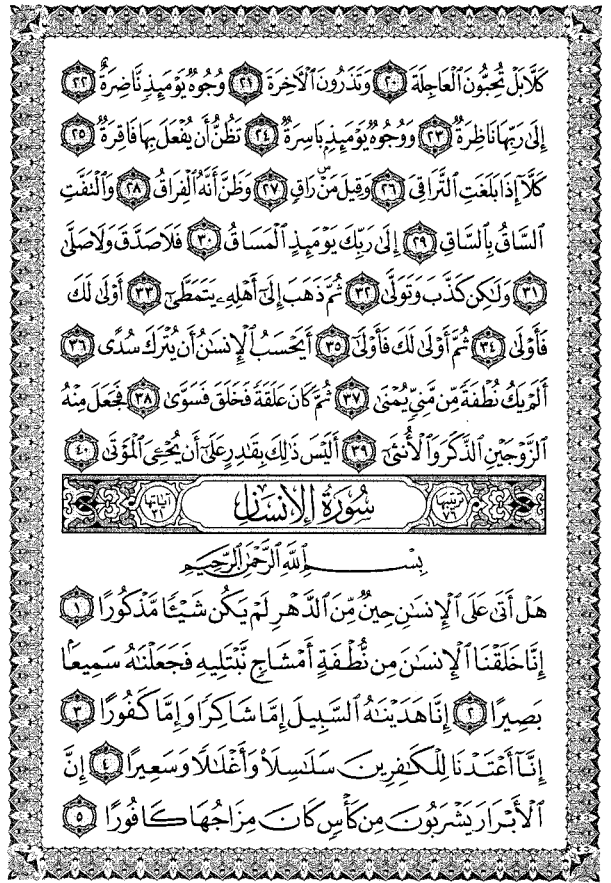 كَلَّا بَلْ تُحِبُّونَ ٱلْعَاجِلَةَ ٢٠ وَتَذَرُونَ ٱلْـَٔاخِرَةَ ٢١ وُجُوهٌ يَوْمَئِذٍ نَّاضِرَةٌ ٢٢
إِلَىٰ رَبِّهَا نَاظِرَةٌ ٢٣ وَوُجُوهٌ يَوْمَئِذٍۭ بَاسِرَةٌ ٢٤ تَظُنُّ أَن يُفْعَلَ بِهَا فَاقِرَةٌ ٢٥
كَلَّآ إِذَا بَلَغَتِ ٱلتَّرَاقِىَ ٢٦ وَقِيلَ مَنْۜ رَاقٍ ٢٧ وَظَنَّ أَنَّهُ ٱلْفِرَاقُ ٢٨ وَٱلْتَفَّتِ
ٱلسَّاقُ بِٱلسَّاقِ ٢٩ إِلَىٰ رَبِّكَ يَوْمَئِذٍ ٱلْمَسَاقُ ٣٠ فَلَا صَدَّقَ وَلَا صَلَّىٰ
٣١ وَلَـٰكِن كَذَّبَ وَتَوَلَّىٰ ٣٢ ثُمَّ ذَهَبَ إِلَىٰٓ أَهْلِهِۦ يَتَمَطَّىٰٓ ٣٣ أَوْلَىٰ لَكَ
فَأَوْلَىٰ ٣٤ ثُمَّ أَوْلَىٰ لَكَ فَأَوْلَىٰٓ ٣٥ أَيَحْسَبُ ٱلْإِنسَـٰنُ أَن يُتْرَكَ سُدًى ٣٦
أَلَمْ يَكُ نُطْفَةً مِّن مَّنِىٍّ يُمْنَىٰ ٣٧ ثُمَّ كَانَ عَلَقَةً فَخَلَقَ فَسَوَّىٰ ٣٨ فَجَعَلَ مِنْهُ
ٱلزَّوْجَيْنِ ٱلذَّكَرَ وَٱلْأُنثَىٰٓ ٣٩ أَلَيْسَ ذَٰلِكَ بِقَـٰدِرٍ عَلَىٰٓ أَن يُحْـِۧىَ ٱلْمَوْتَىٰ ٤٠
ترتيبها ٧٦ سُورَةُ الإنسَان آياتها ٣١
بِسْمِ ٱللَّهِ ٱلرَّحْمَـٰنِ ٱلرَّحِيمِ
هَلْ أَتَىٰ عَلَى ٱلْإِنسَـٰنِ حِينٌ مِّنَ ٱلدَّهْرِ لَمْ يَكُن شَيْـًٔا مَّذْكُورًا ١
إِنَّا خَلَقْنَا ٱلْإِنسَـٰنَ مِن نُّطْفَةٍ أَمْشَاجٍ نَّبْتَلِيهِ فَجَعَلْنَـٰهُ سَمِيعًۢا
بَصِيرًا ٢ إِنَّا هَدَيْنَـٰهُ ٱلسَّبِيلَ إِمَّا شَاكِرًا وَإِمَّا كَفُورًا ٣
إِنَّآ أَعْتَدْنَا لِلْكَـٰفِرِينَ سَلَـٰسِلَا۟ وَأَغْلَـٰلًا وَسَعِيرًا ٤ إِنَّ
ٱلْأَبْرَارَ يَشْرَبُونَ مِن كَأْسٍ كَانَ مِزَاجُهَا كَافُورًا ٥